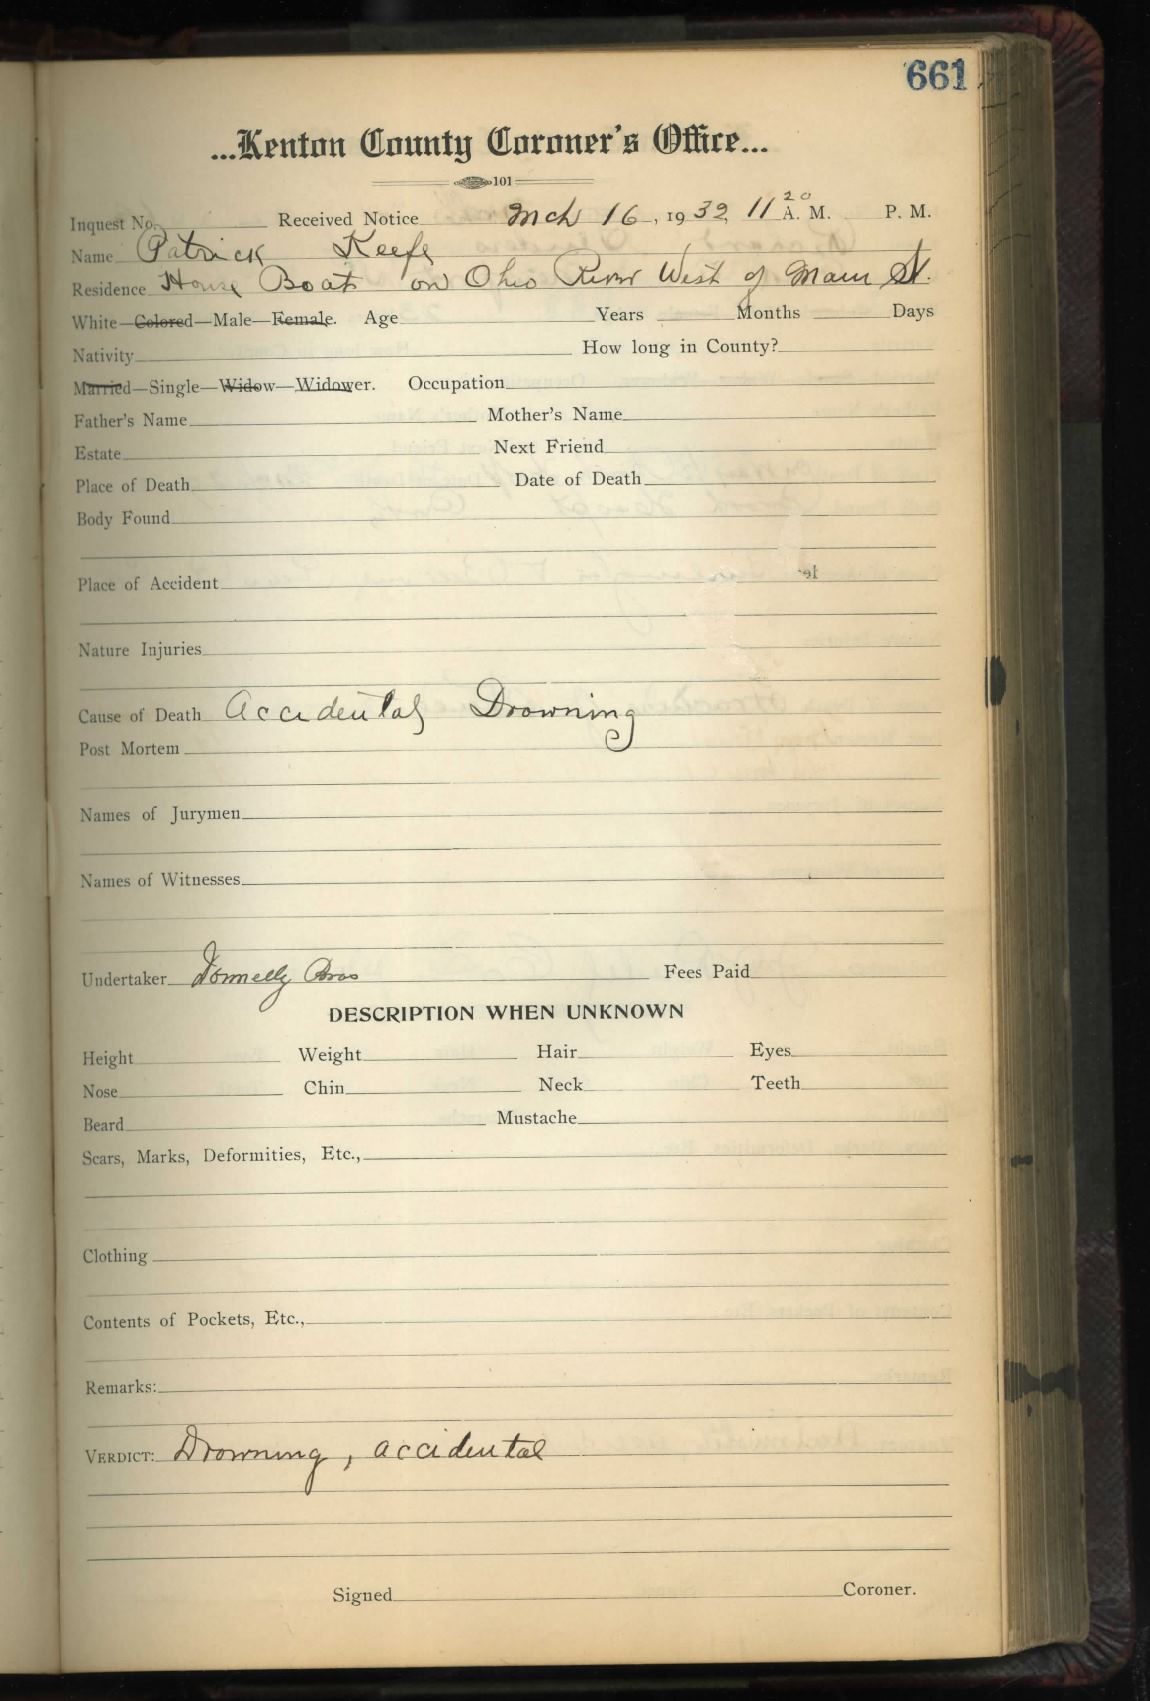 661
...Kenton County Coroner's Office...
101
Inquest No. Received Notice Mch 16, 1932 11 20 A. M. P. M.
Name Patrick Keefe
Residence House Boat on Ohio River West of Main St.
White—Colored—Male—Female. Age Years Months Days
Nativity How long in County?
Married—Single—Widow—Widower. Occupation
Father's Name Mother's Name
Estate Next Friend
Place of Death Date of Death
Body Found
Place of Accident
Nature Injuries
Cause of Death Accidental Drowning
Post Mortem
Names of Jurymen
Names of Witnesses
Undertaker Donnelly Bros Fees Paid
DESCRIPTION WHEN UNKNOWN
Height Weight Hair Eyes
Nose Chin Neck Teeth
Beard Mustache
Scars, Marks, Deformities, Etc.,
Clothing
Contents of Pockets, Etc.,
Remarks:
VERDICT: Drowning, accidental
Signed Coroner.